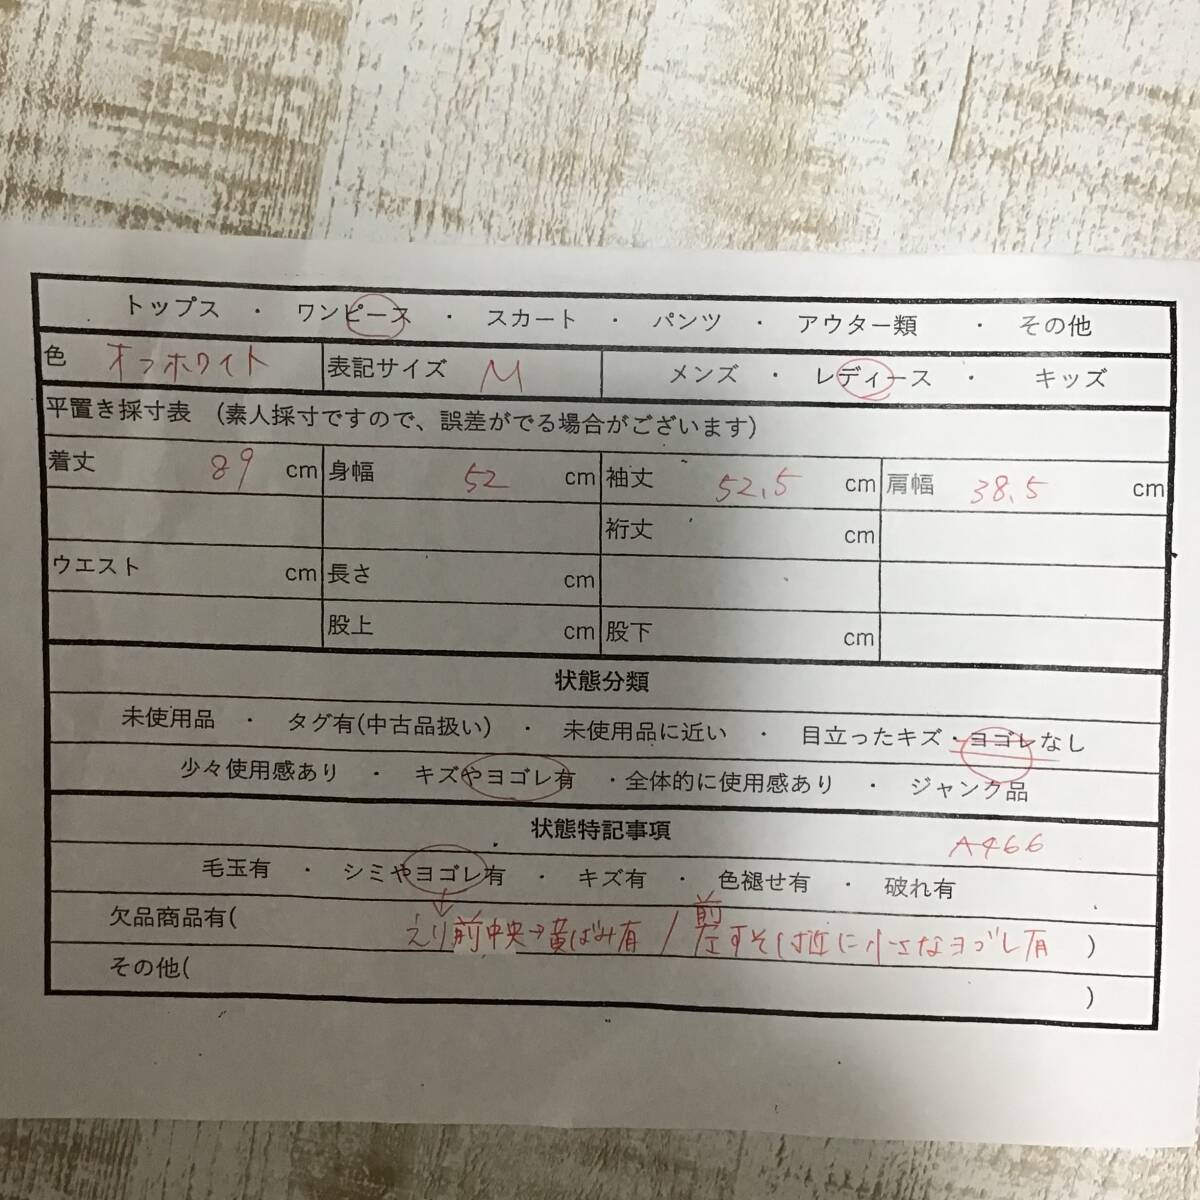 トップス ・ ワンピース ・ スカート ・ パンツ ・ アウター類 ・ その他
色 オフホワイト 表記サイズ M メンズ ・ レディース ・ キッズ
平置き採寸表 (素人採寸ですので、誤差がでる場合がございます)
着丈 89 cm 身幅 52 cm 袖丈 52.5 cm 肩幅 38.5 cm
裄丈 cm
ウエスト cm 長さ cm
股上 cm 股下 cm
状態分類
未使用品 ・ タグ有(中古品扱い) ・ 未使用品に近い ・ 目立ったキズ・ヨゴレなし
少々使用感あり ・ キズやヨゴレ有 ・全体的に使用感あり ・ ジャンク品
状態特記事項 A466
毛玉有 ・ シミやヨゴレ有 ・ キズ有 ・ 色褪せ有 ・ 破れ有
欠品商品有( えり前中央→黄ばみ有 / 前左すそ付近に小さなヨゴレ有 )
その他( )